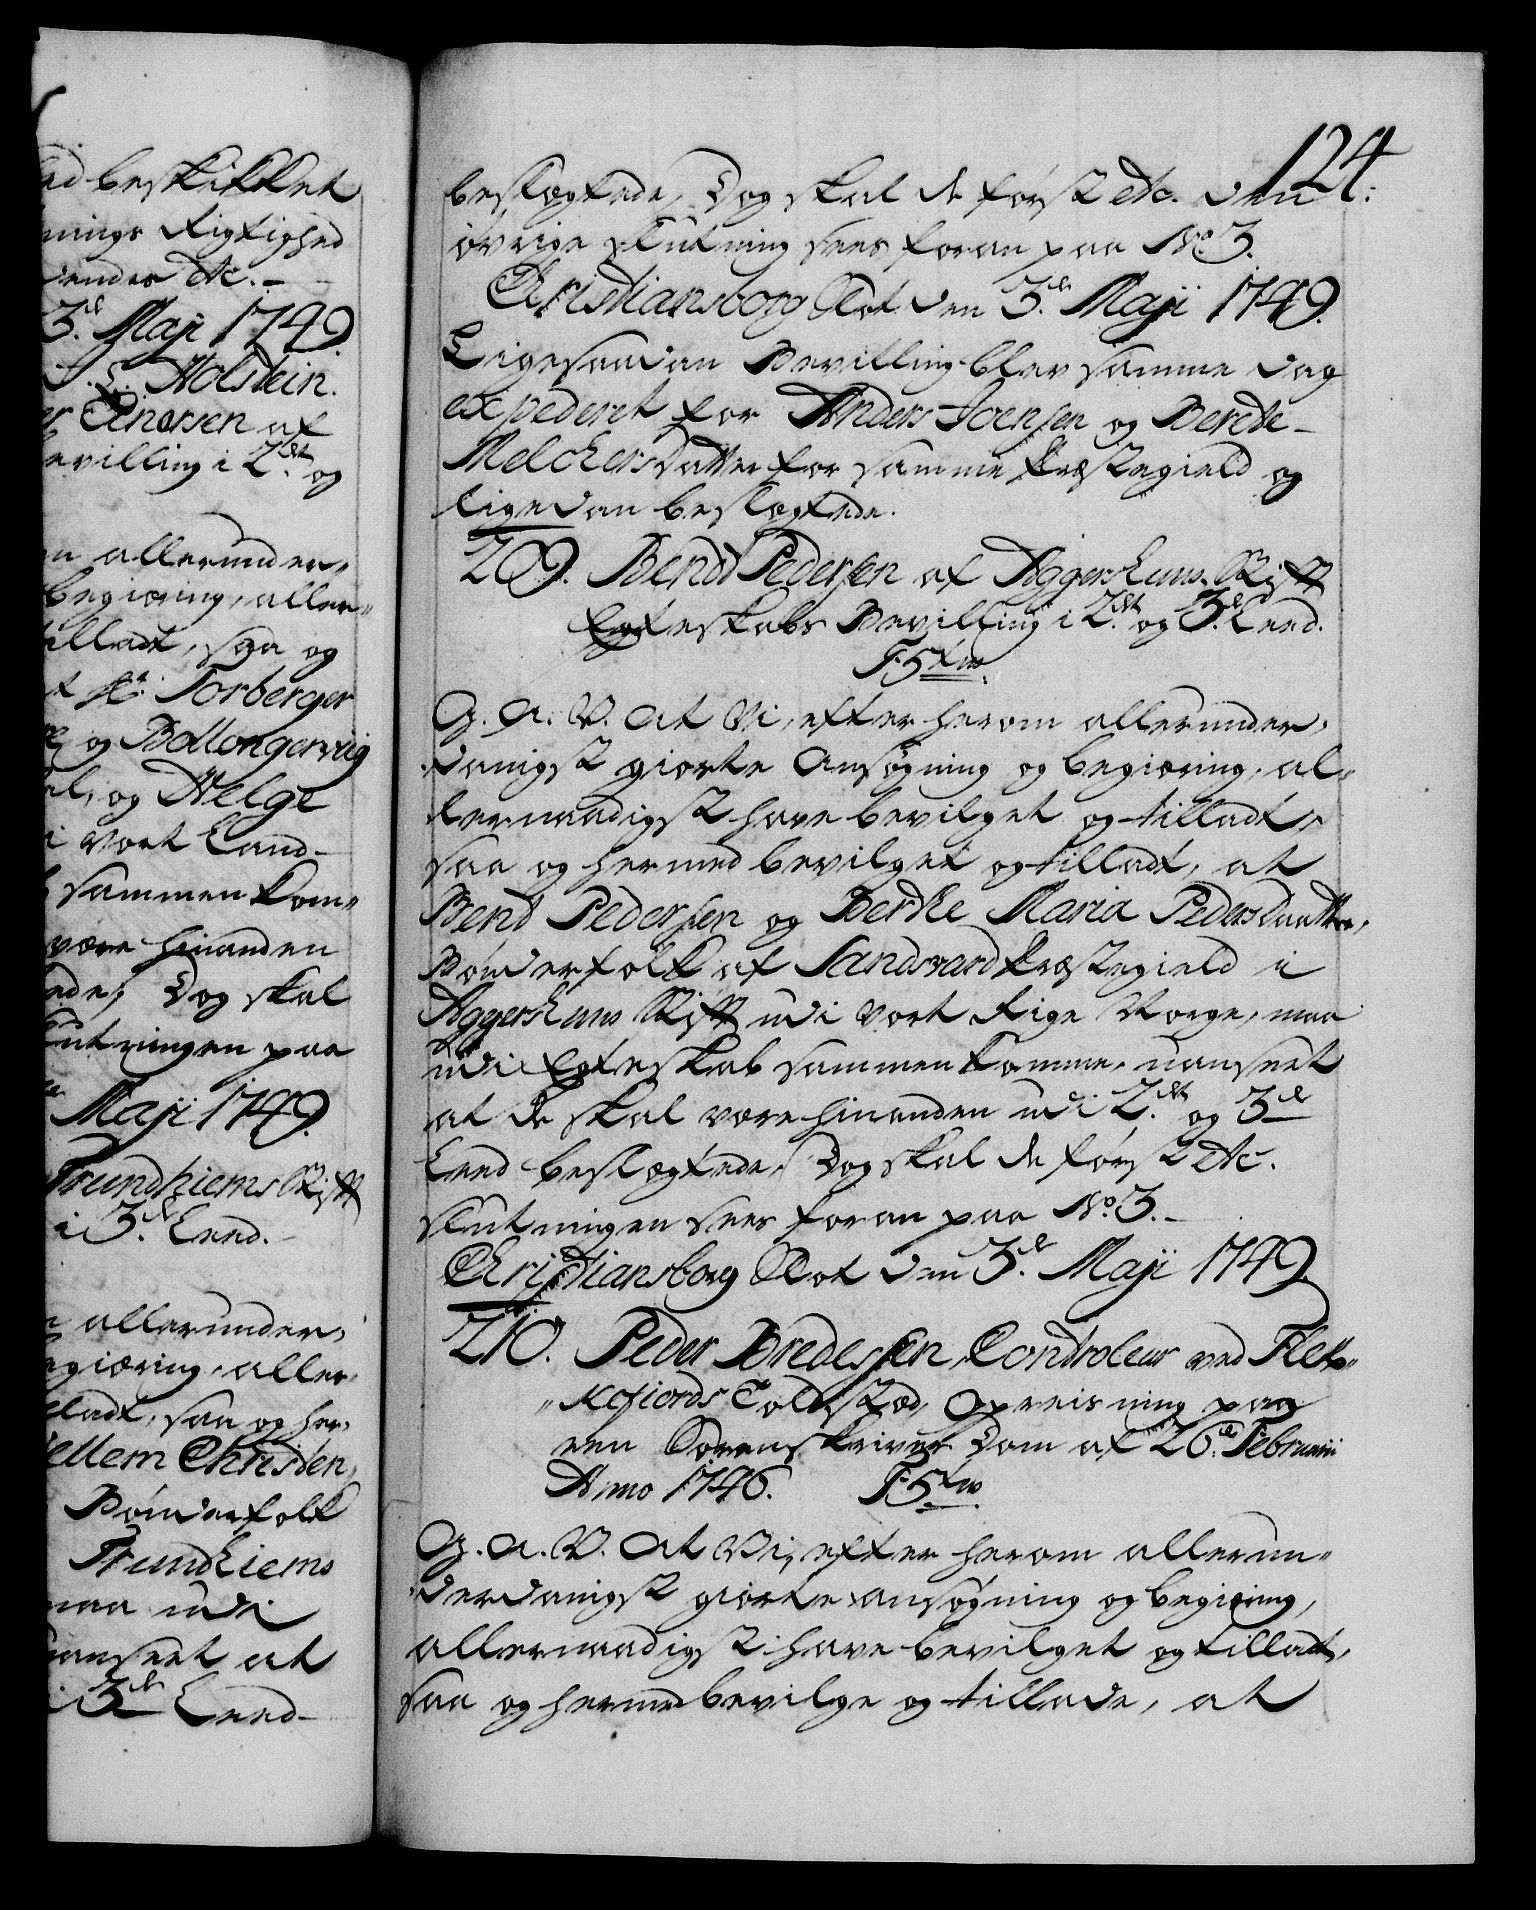 ed beskikket
nings Rigtighed
vendes etc. -
3de Maji 1749.
J. L. Holstein.
Enersen af
evilling i 2det og
n allerunder-
begiæring, aller-
illadt, saa og
Hr. Torberger
og Bollongervig
al, og Helge
i vort Land-
sammenkom-
være hinanden
ede, Dog skal
lutningen paa
Maji 1749.
Trundhiems Stift
i 3de Leed.
allerunder-
egiæring, aller-
ladt, saa og her-
ellem Christen,
Bönderfolk
Trundhiems
maa udi
uanseet at
i 3de Leed-
124.
beslægtede, Dog skal de først etc. den
övrige slutning sees foran paa No. 3.
Christiansborg Slot den 3de Maji 1749.
Ligesaadan Bevilling blev samme dag
expederet for Anders Joensen og Berete
Melchersdatter for samme Præstegield og
ligedan beslægtede.
209. Bendt Pedersen af Aggershuus Stift
Egteskabs Bevilling i 2det og 3de Leed.
F. 5tus.
G. A. V. At Vi, efter herom allerunder-
danigst giorte Ansøgning og begiæring, al-
lernaadigst have bevilget og tilladt,
saa og hermed bevilget og tilladt, at
Bend Pedersen og Berthe Maria Pedersdaatter,
Bönderfolk af Sandsværd Præstegield i
Aggershuus Stift udi vort Rige Norge, maa
udi Egteskab sammenkomme, uanseet
at de skal være hinanden udi 2det og 3de
Leed beslægtede, Dog skal de først etc.
slutningen sees foran paa No. 3. -
Christiansborg Slot den 3de Maji 1749.
210. Peder Bredessen, Controleur ved Flek-
kefiords Toldstæd, Opreisning paa
een Sorenskriver Dom af 26de Februarii
Anno 1746. F. 5tus.
G. A. V. At Vi, efter herom allerun-
derdanigst giorte ansøgning og begiæring,
allernaadigst have bevilget og tilladt,
saa og hermed bevilge og tillade, at